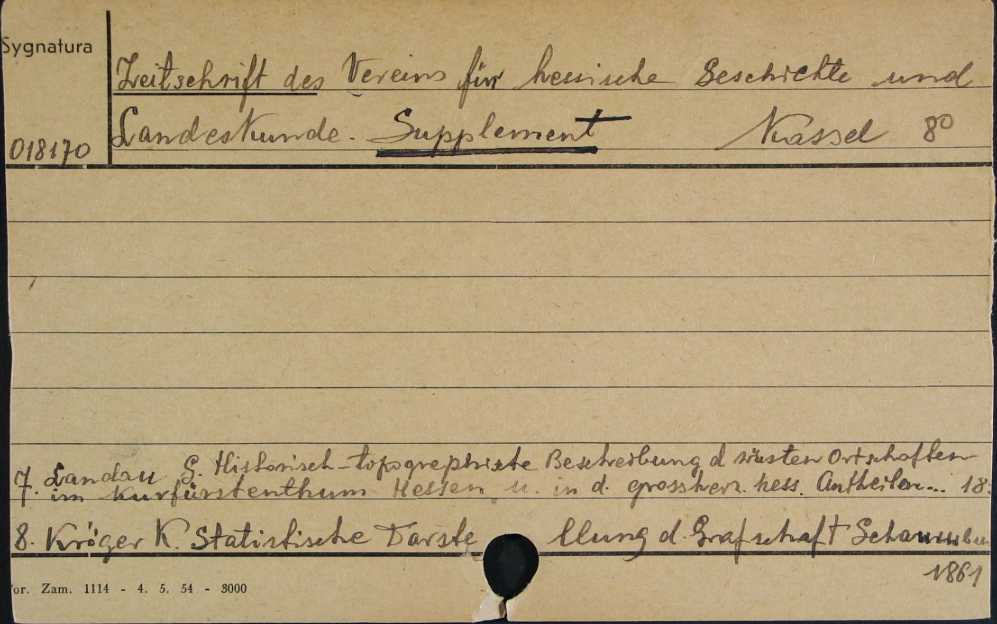 Sygnatura
Zeitschrift des Vereins für hessische Geschichte und
Landeskunde. Supplement Kassel 8°
018170
7. Landau G. Historisch-topographische Beschreibung d wüsten Ortschaften
im Kurfürstenthum Hessen u. in d. grossherz. hess. Antheilen... 18
8. Kröger K. Statistische Darste llung d. Grafschaft Schaumbu
1861
or. Zam. 1114 - 4. 5. 54 - 3000